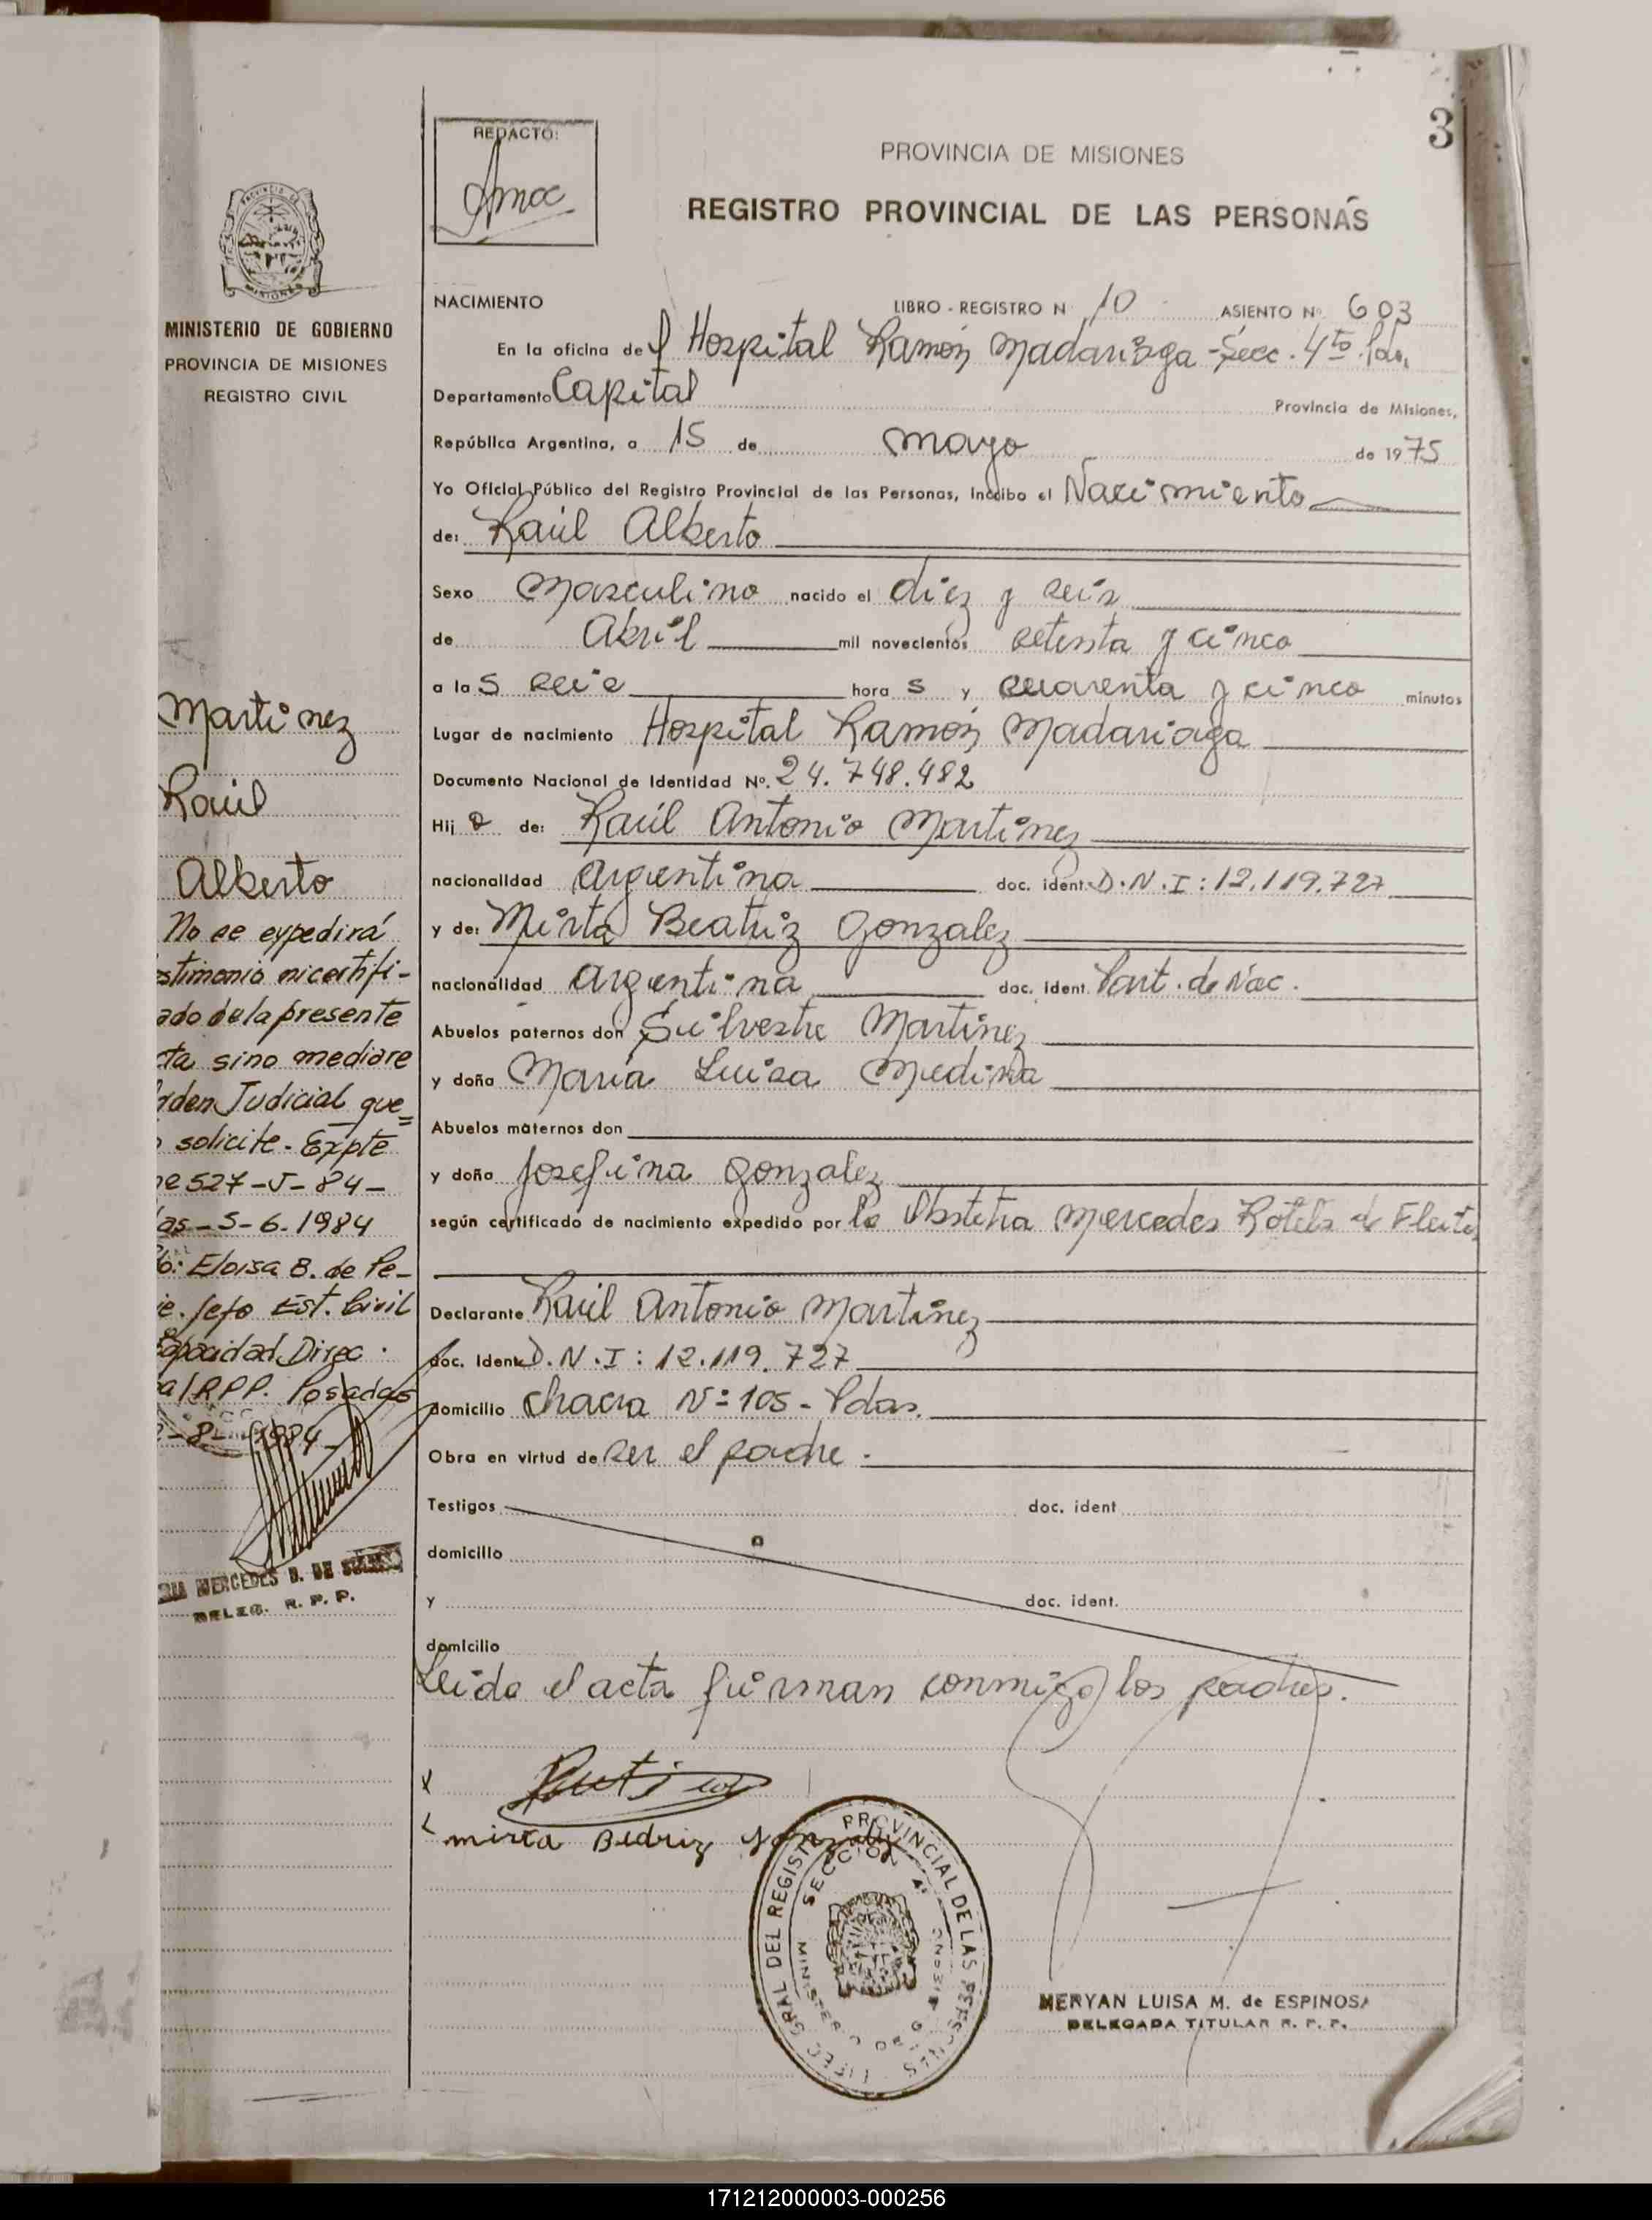 3
REDACTÓ:
PROVINCIA DE MISIONES
REGISTRO PROVINCIAL DE LAS PERSONAS
NACIMIENTO LIBRO - REGISTRO N 10 ASIENTO Nº 603
En la oficina del Hospital Ramón Madariaga - Secc. 4to Pdas.
Departamento Capital Provincia de Misiones,
República Argentina, a 15 de mayo de 1975
Yo Oficial Público del Registro Provincial de las Personas, Inscribo el Nacimiento
de: Raúl Alberto
Sexo Masculino nacido el diez y seis
de Abril mil novecientos setenta y cinco
a las seis horas y cuarenta y cinco minutos
Lugar de nacimiento Hospital Ramón Madariaga
Documento Nacional de Identidad Nº. 24.748.482
Hijo de: Raúl Antonio Martinez
nacionalidad argentina doc. ident. D.N.I: 12.119.727
y de: Mirta Beatriz Gonzalez
nacionalidad argentina doc. ident. Part. de Nac.
Abuelos paternos don Silvestre Martinez
y doña María Luisa Medina
Abuelos maternos don
y doña Josefina Gonzalez
según certificado de nacimiento expedido por la Obstetra Mercedes Rotela de Fleita
Declarante Raúl Antonio Martinez
doc. Ident. D.N.I: 12.119.727
domicilio chacra Nº 105 - Pdas.
Obra en virtud de ser el padre.
Testigos doc. ident
domicilio
y doc. ident.
domicilio
Leída el acta firman conmigo los padres.
mirta Bedriz Gonzalez
GRAL DEL REGISTRO PROVINCIAL DE LAS PERSONAS
SECCION 4ª
MINISTERIO DE GOBIERNO
MERYAN LUISA M. de ESPINOSA
DELEGADA TITULAR R. P. P.
MISIONES
MINISTERIO DE GOBIERNO
PROVINCIA DE MISIONES
REGISTRO CIVIL
Martinez
Raúl
Alberto
No se expedirá
estimonio ni certifi-
ado de la presente
cta sino mediare
rden Judicial que
o solicite - Expte
ne 527-J-84-
as-5-6-1984
do: Eloisa B. de Pe-
ie. Jefe Est. Civil
Capacidad Direc.
al RPP. Posadas
-8-1984-
MERCEDES
DELEG. R. P. P.
171212000003-000256